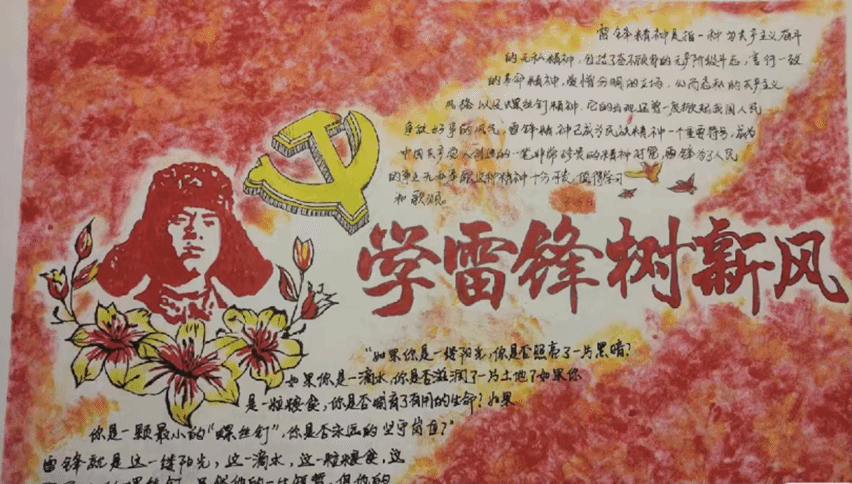 雷锋精神是指一种为共产主义奋斗
的无私精神，包括了奋不顾身的无产阶级斗志，言行一致
的革命精神，爱憎分明的立场，公而忘私的共产主义
风格以及螺丝钉精神，它的出现
我国人民
争做好事的风气。雷锋精神已成为民族精神一个重要符号，成为
中国共产党人创造的一笔非常珍贵的精神财富，雷锋为了人民
的事业无私奉献，这种精神十分可贵，值得学习
和歌颂。
学雷锋树新风
“如果你是一缕阳光，你是否照亮了一片黑暗？
如果你是一滴水，你是否滋润了一片土地？如果你
是一粒粮食，你是否哺育了有用的生命？如果
你是一颗最小的“螺丝钉”，你是否永远的坚守岗位？”
雷锋就是这一缕阳光，这一滴水，这一粒粮食，这